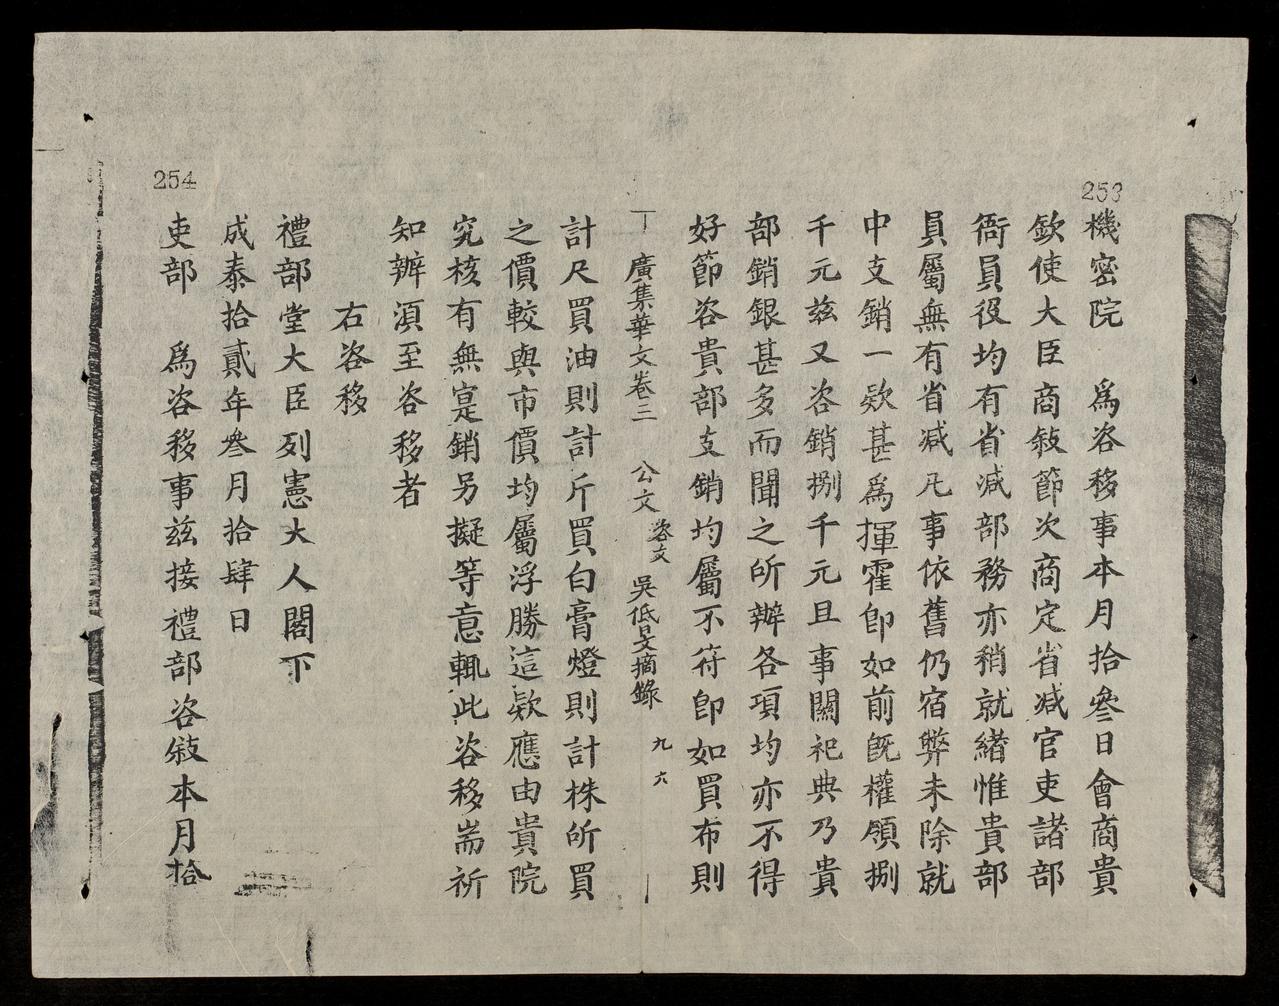 253
機密院　爲咨移事本月拾叄日會商貴
欽使大臣商敍節次商定省減官吏諸部
衙員役均有省減部務亦稍就緒惟貴部
員屬無有省減凡事依舊仍宿弊未除就
中支銷一欵甚爲揮霍卽如前旣權領捌
千元兹又咨銷捌千元且事關祀典乃貴
部銷銀甚多而聞之所辦各項均亦不得
好節咨貴部支銷均屬不符卽如買布則
廣集華文卷三　公文　咨文　吳低旻摘錄　九六
計尺買油則計斤買白膏燈則計株所買
之價較與市價均屬浮勝這欵應由貴院
究核有無寔銷另擬等意輒此咨移耑祈
知辦湏至咨移者
右咨移
禮部堂大臣列憲大人閣下
成泰拾貳年叄月拾肆日
254
吏部　爲咨移事兹接禮部咨敍本月拾